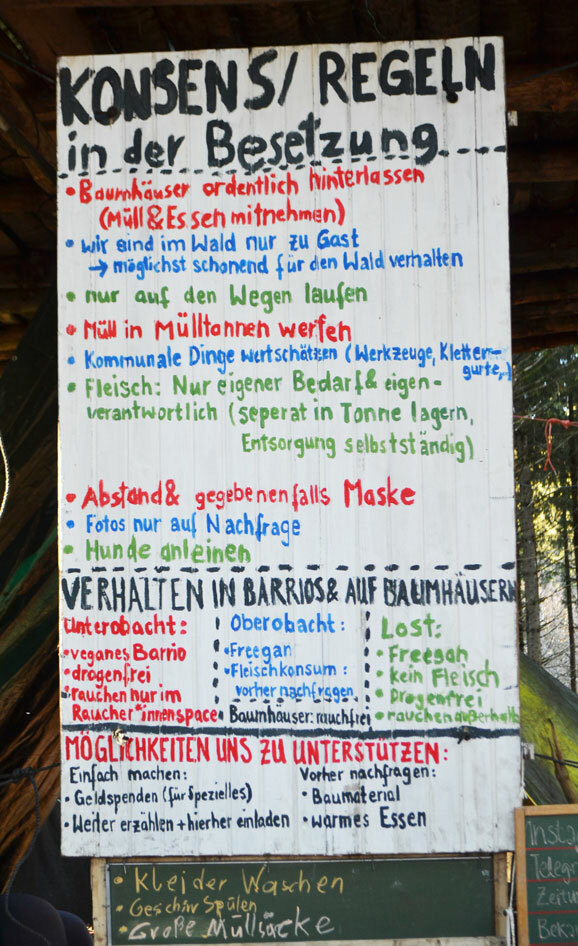 KONSENS/ REGELN
in der Besetzung
• Baumhäuser ordentlich hinterlassen
(Müll & Essen mitnehmen)
• wir sind im Wald nur zu Gast
→ möglichst schonend für den Wald verhalten
• nur auf den Wegen laufen
• Müll in Mülltonnen werfen
• Kommunale Dinge wertschätzen (Werkzeuge, Kletter-
gurte,)
• Fleisch: Nur eigener Bedarf & eigen-
verantwortlich (seperat in Tonne lagern,
Entsorgung selbstständig)
• Abstand & gegebenenfalls Maske
• Fotos nur auf Nachfrage
• Hunde anleinen
VERHALTEN IN BARRIOS & AUF BAUMHÄUSERN
Unterobacht:
• veganes Barrio
• drogenfrei
• rauchen nur im
Raucher*innenspace
Oberobacht:
• Freegan
• Fleischkonsum:
vorher nachfragen
• Baumhäuser: rauchfrei
Lost:
• Freegan
• kein Fleisch
• Drogenfrei
• rauchen außerhalb
MÖGLICHKEITEN UNS ZU UNTERSTÜTZEN:
Einfach machen:
• Geldspenden (für Spezielles)
• Weiter erzählen + hierher einladen
Vorher nachfragen:
• Baumaterial
• warmes Essen
• Kleider Waschen
• Geschirr Spülen
• Große Müllsäcke
Insta
Telegr
Zeitu
Beka